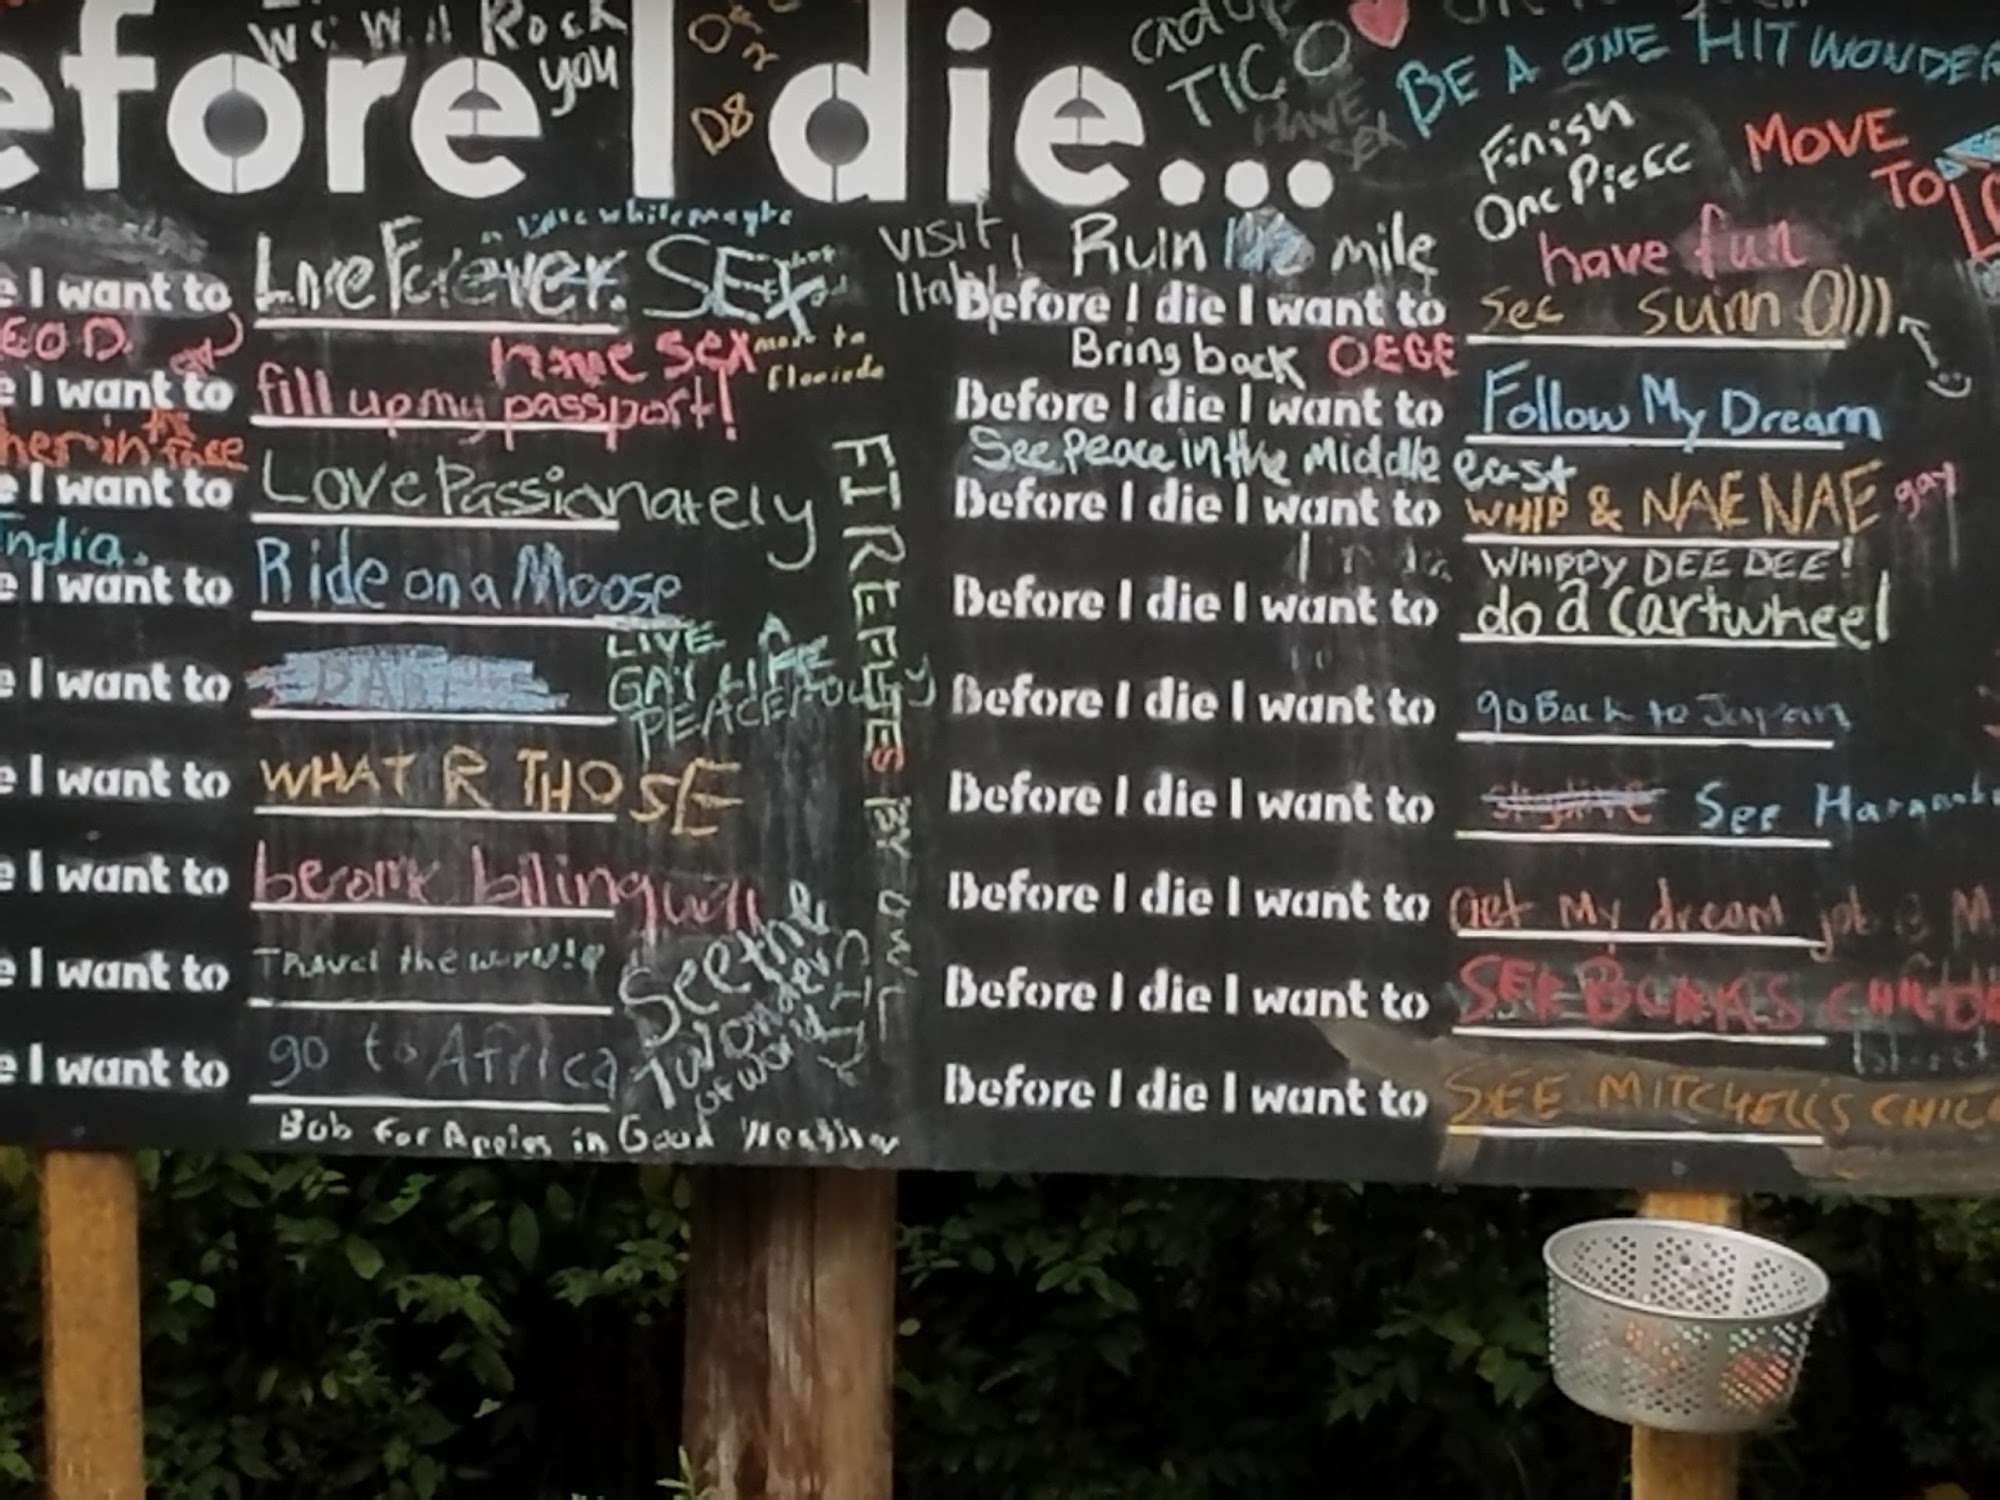 We Will Rock
you
efore I die...
TICO
HAVE
SEX
BE A ONE HIT WONDER
Finish
One Piece
MOVE
TO
have fun
a little while maybe
e I want to Live Forever. SEX
have sex
move to
Florida
e I want to fill up my passport!
her in the face
e I want to Love Passionately
India.
e I want to Ride on a Moose
LIVE A
GAY LIFE
PEACEFULLY
e I want to
e I want to WHAT R THOSE
e I want to become bilingual
e I want to Travel the world!
See the
7 wonders
of world
e I want to go to Africa
Bob for Apples in Good Weather
FIREFLIES BY OWL
CITY
VISIT
Italy
Run mile
Before I die I want to See Sum O)))
Bring back OEGE
Before I die I want to Follow My Dream
See Peace in the Middle east
Before I die I want to WHIP & NAE NAE gay
WHIPPY DEE DEE!
Before I die I want to do a cartwheel
Before I die I want to go Back to Japan
Before I die I want to skydive See
Before I die I want to Get My dream job @ M
Before I die I want to SEE
Before I die I want to SEE MITCHELLS CHIL